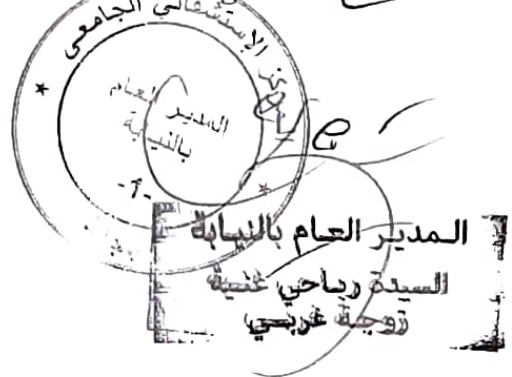 الإستشفائي الجامعي
المدير العام
بالنيابة
-1-
المدير العام بالنيابة
السيدة رياحي غنية
زوجة غربي